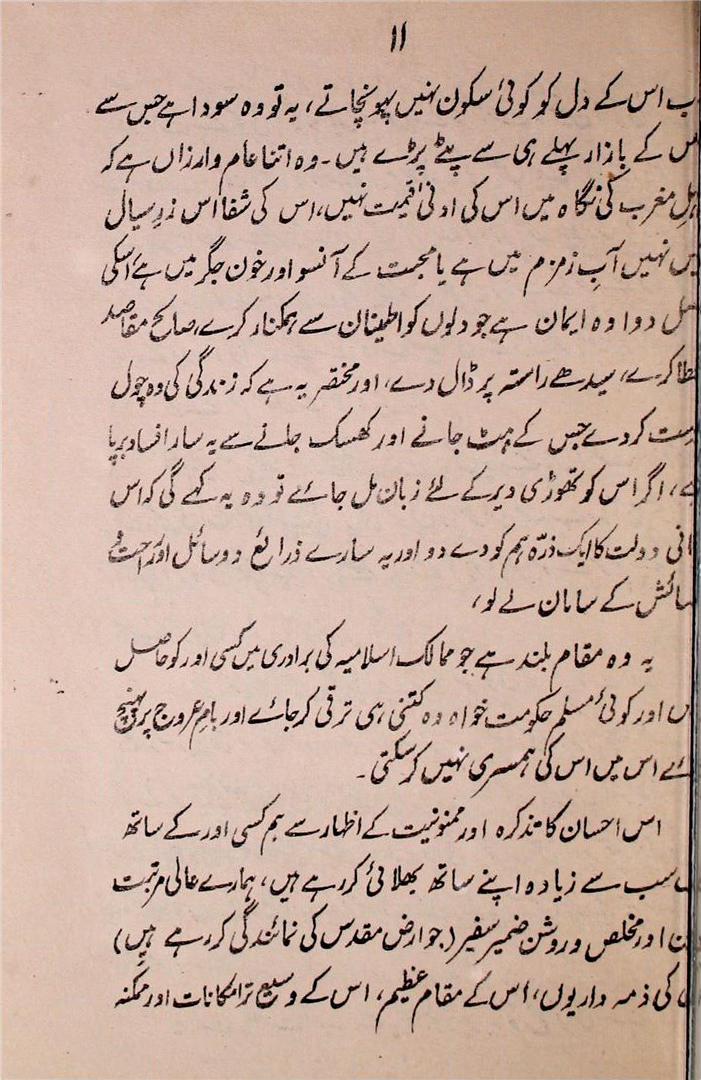 ۱۱
ب اس کے دل کو کوئی سکون نہیں پہونچاتے، یہ تو وہ سودا ہے جس سے
س کے بازار پہلے ہی سے پٹے پڑے ہیں۔ وہ اتنا عام و ارزاں ہے کہ
ہلِ مغرب کی نگاہ میں اس کی ادنیٰ قیمت نہیں، اس کی شفا اس زرِ سیال
یں نہیں آبِ زمزم میں ہے یا محبت کے آنسو اور خون جگر میں ہے اسکی
صل دوا وہ ایمان ہے جو دلوں کو اطینان سے ہمکنار کرے، صالح مقاصد
عطا کرے، سیدھے راستہ پر ڈال دے، اور مختصر یہ ہے کہ زندگی کی وہ چول
رست کر دے جس کے ہٹ جانے اور کھسک جانے سے یہ سارا فساد برپا
ہے، اگر اس کو تھوڑی دیر کے لئے زبان مل جائے تو وہ یہ کہے گی کہ اس
انی دولت کا ایک ذرّہ ہم کو دے دو اور یہ سارے ذرائع و وسائل اور راحت و
سائش کے سامان لے لو،
یہ وہ مقام بلند ہے جو ممالک اسلامیہ کی برادری میں کسی اور کو حاصل
ں اور کوئی مسلم حکومت خواہ وہ کتنی ہی ترقی کر جائے اور بامِ عروج پر پہنچ
ئے اس میں اس کی ہمسری نہیں کر سکتی۔
اس احسان کا تذکرہ اور ممنونیت کے اظہار سے ہم کسی اور کے ساتھ
سب سے زیادہ اپنے ساتھ بھلائی کر رہے ہیں، ہمارے عالی مرتبت
ن اور مخلص و روشن ضمیر سفیر (جو ارض مقدس کی نمائندگی کر رہے ہیں)
کی ذمہ داریوں، اس کے مقام عظیم، اس کے وسیع تر امکانات اور ممکنہ